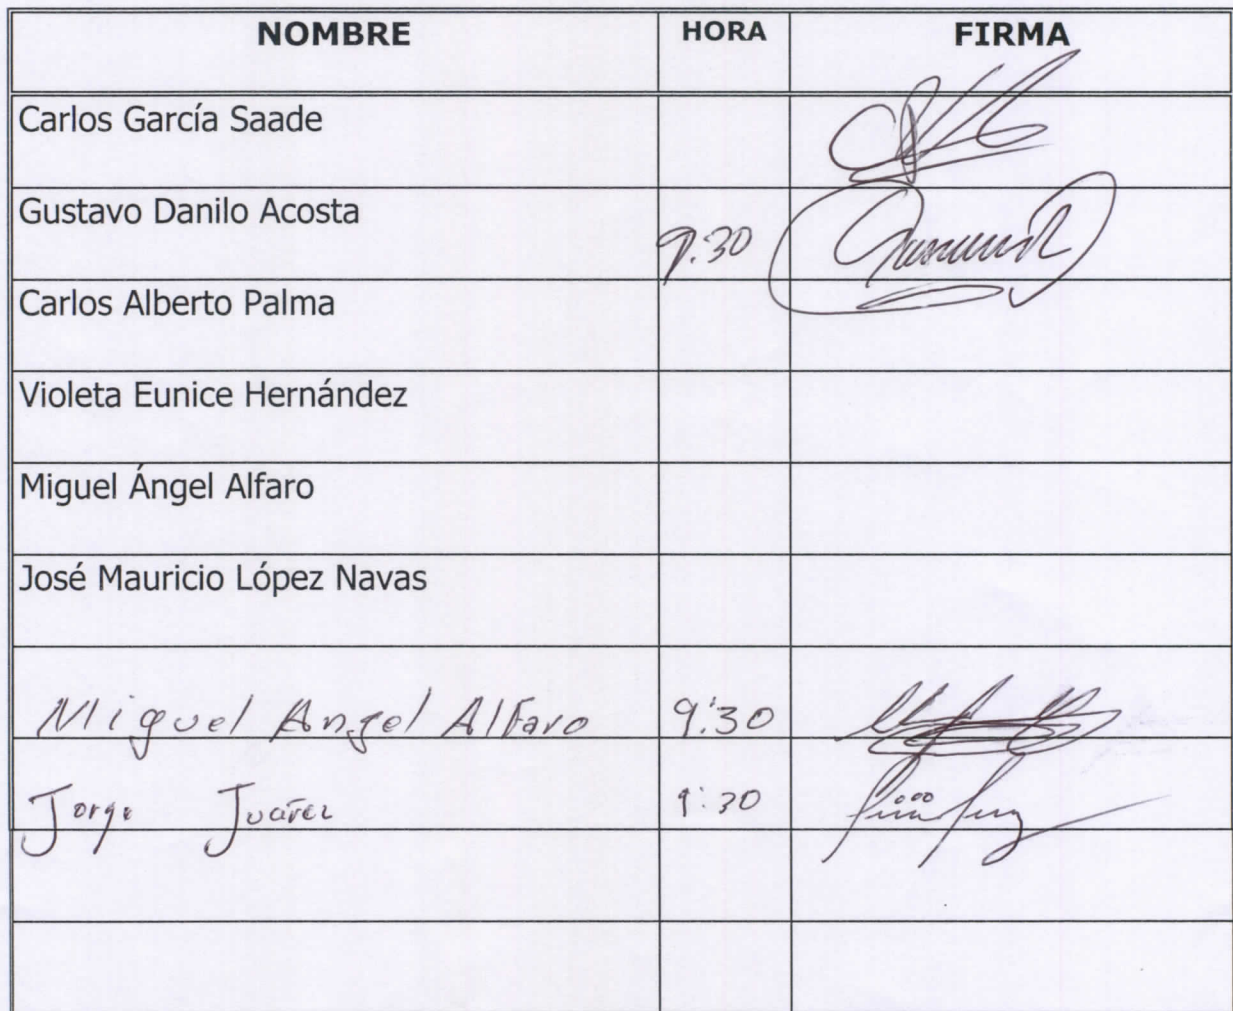 NOMBRE HORA FIRMA
Carlos García Saade
Gustavo Danilo Acosta 9:30
Carlos Alberto Palma
Violeta Eunice Hernández
Miguel Ángel Alfaro
José Mauricio López Navas
Miguel Angel Alfaro 9:30
Jorge Juárez 9:30